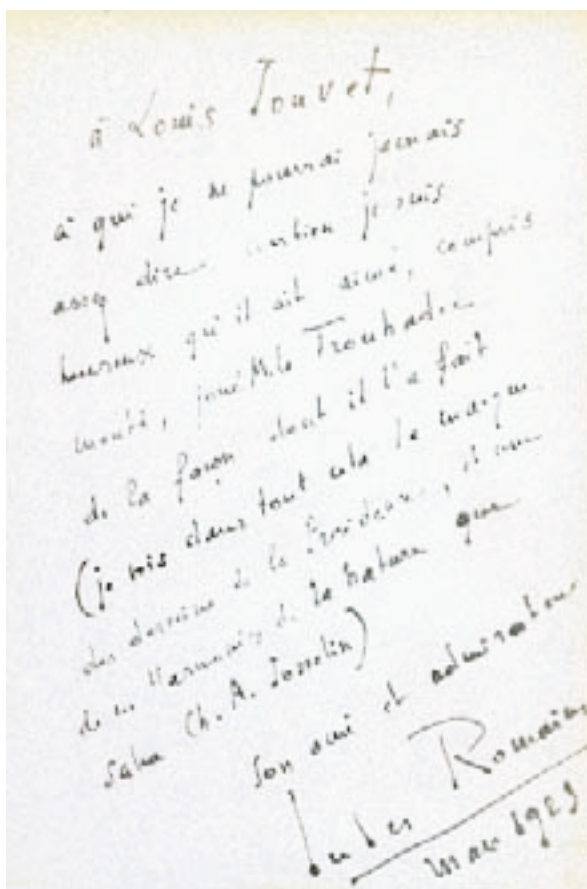 à Louis Jouvet,
à qui je ne pourrai jamais
assez dire combien je suis
heureux qu'il ait aimé, compris
monté, joué M. le Trouhadec
de la façon dont il l'a fait
(je vois dans tout cela la marque
des desseins de la Providence, et une
de ces Harmonies de la Nature que
salua Ch. A. Josselin)
Son ami et admirateur
Jules Romains
mars 1923